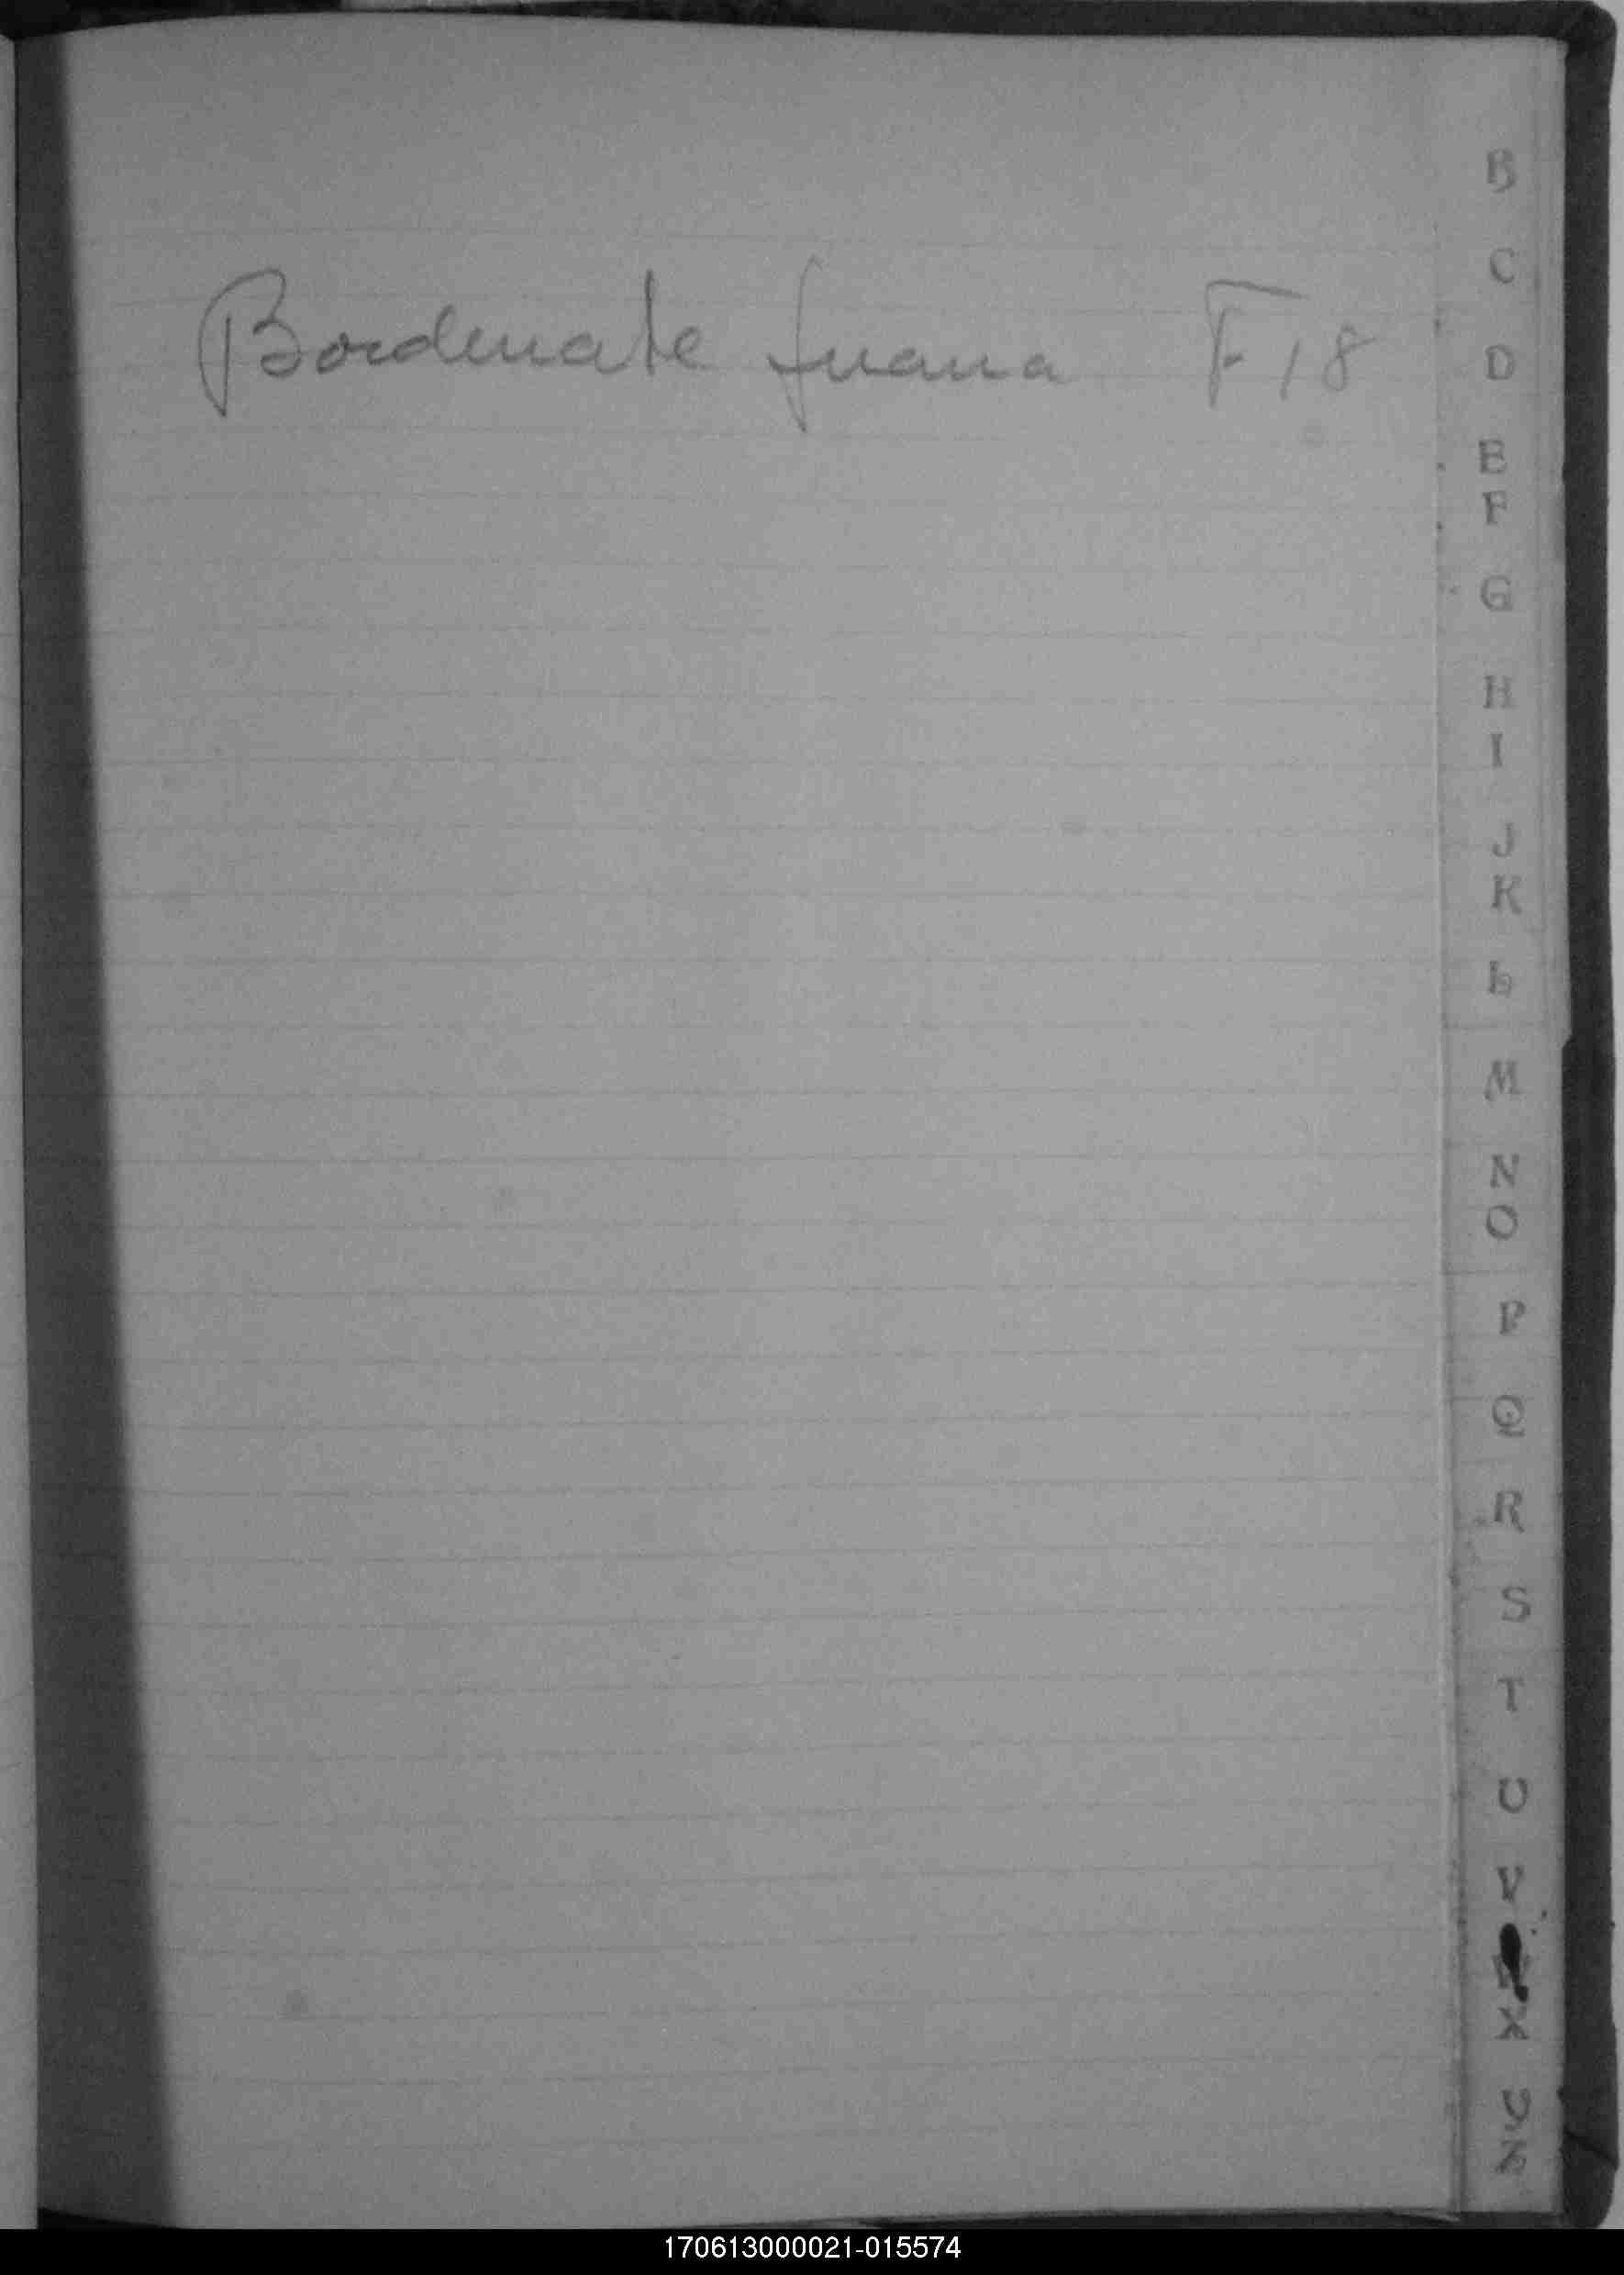 Bordenate Juana F 18
B
C
D
E
F
G
H
I
J
K
L
M
N
O
P
Q
R
S
T
U
V
X
Y
Z
170613000021-015574